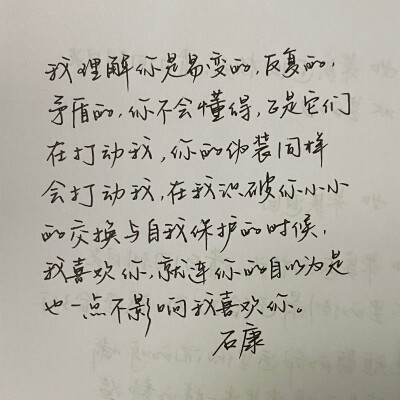 我理解你是易变的,反复的,
矛盾的,你不会懂得,正是它们
在打动我,你的伪装同样
会打动我,在我识破你小小
的交换与自我保护的时候,
我喜欢你,就连你的自以为是
也一点不影响我喜欢你。
石康